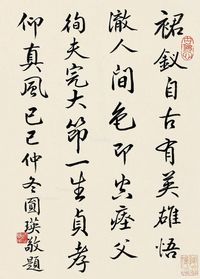 裙釵自古有英雄悟
澈人間色即空瘞父
徇夫完大節一生貞孝
仰真風己巳仲冬圓瑛敬題